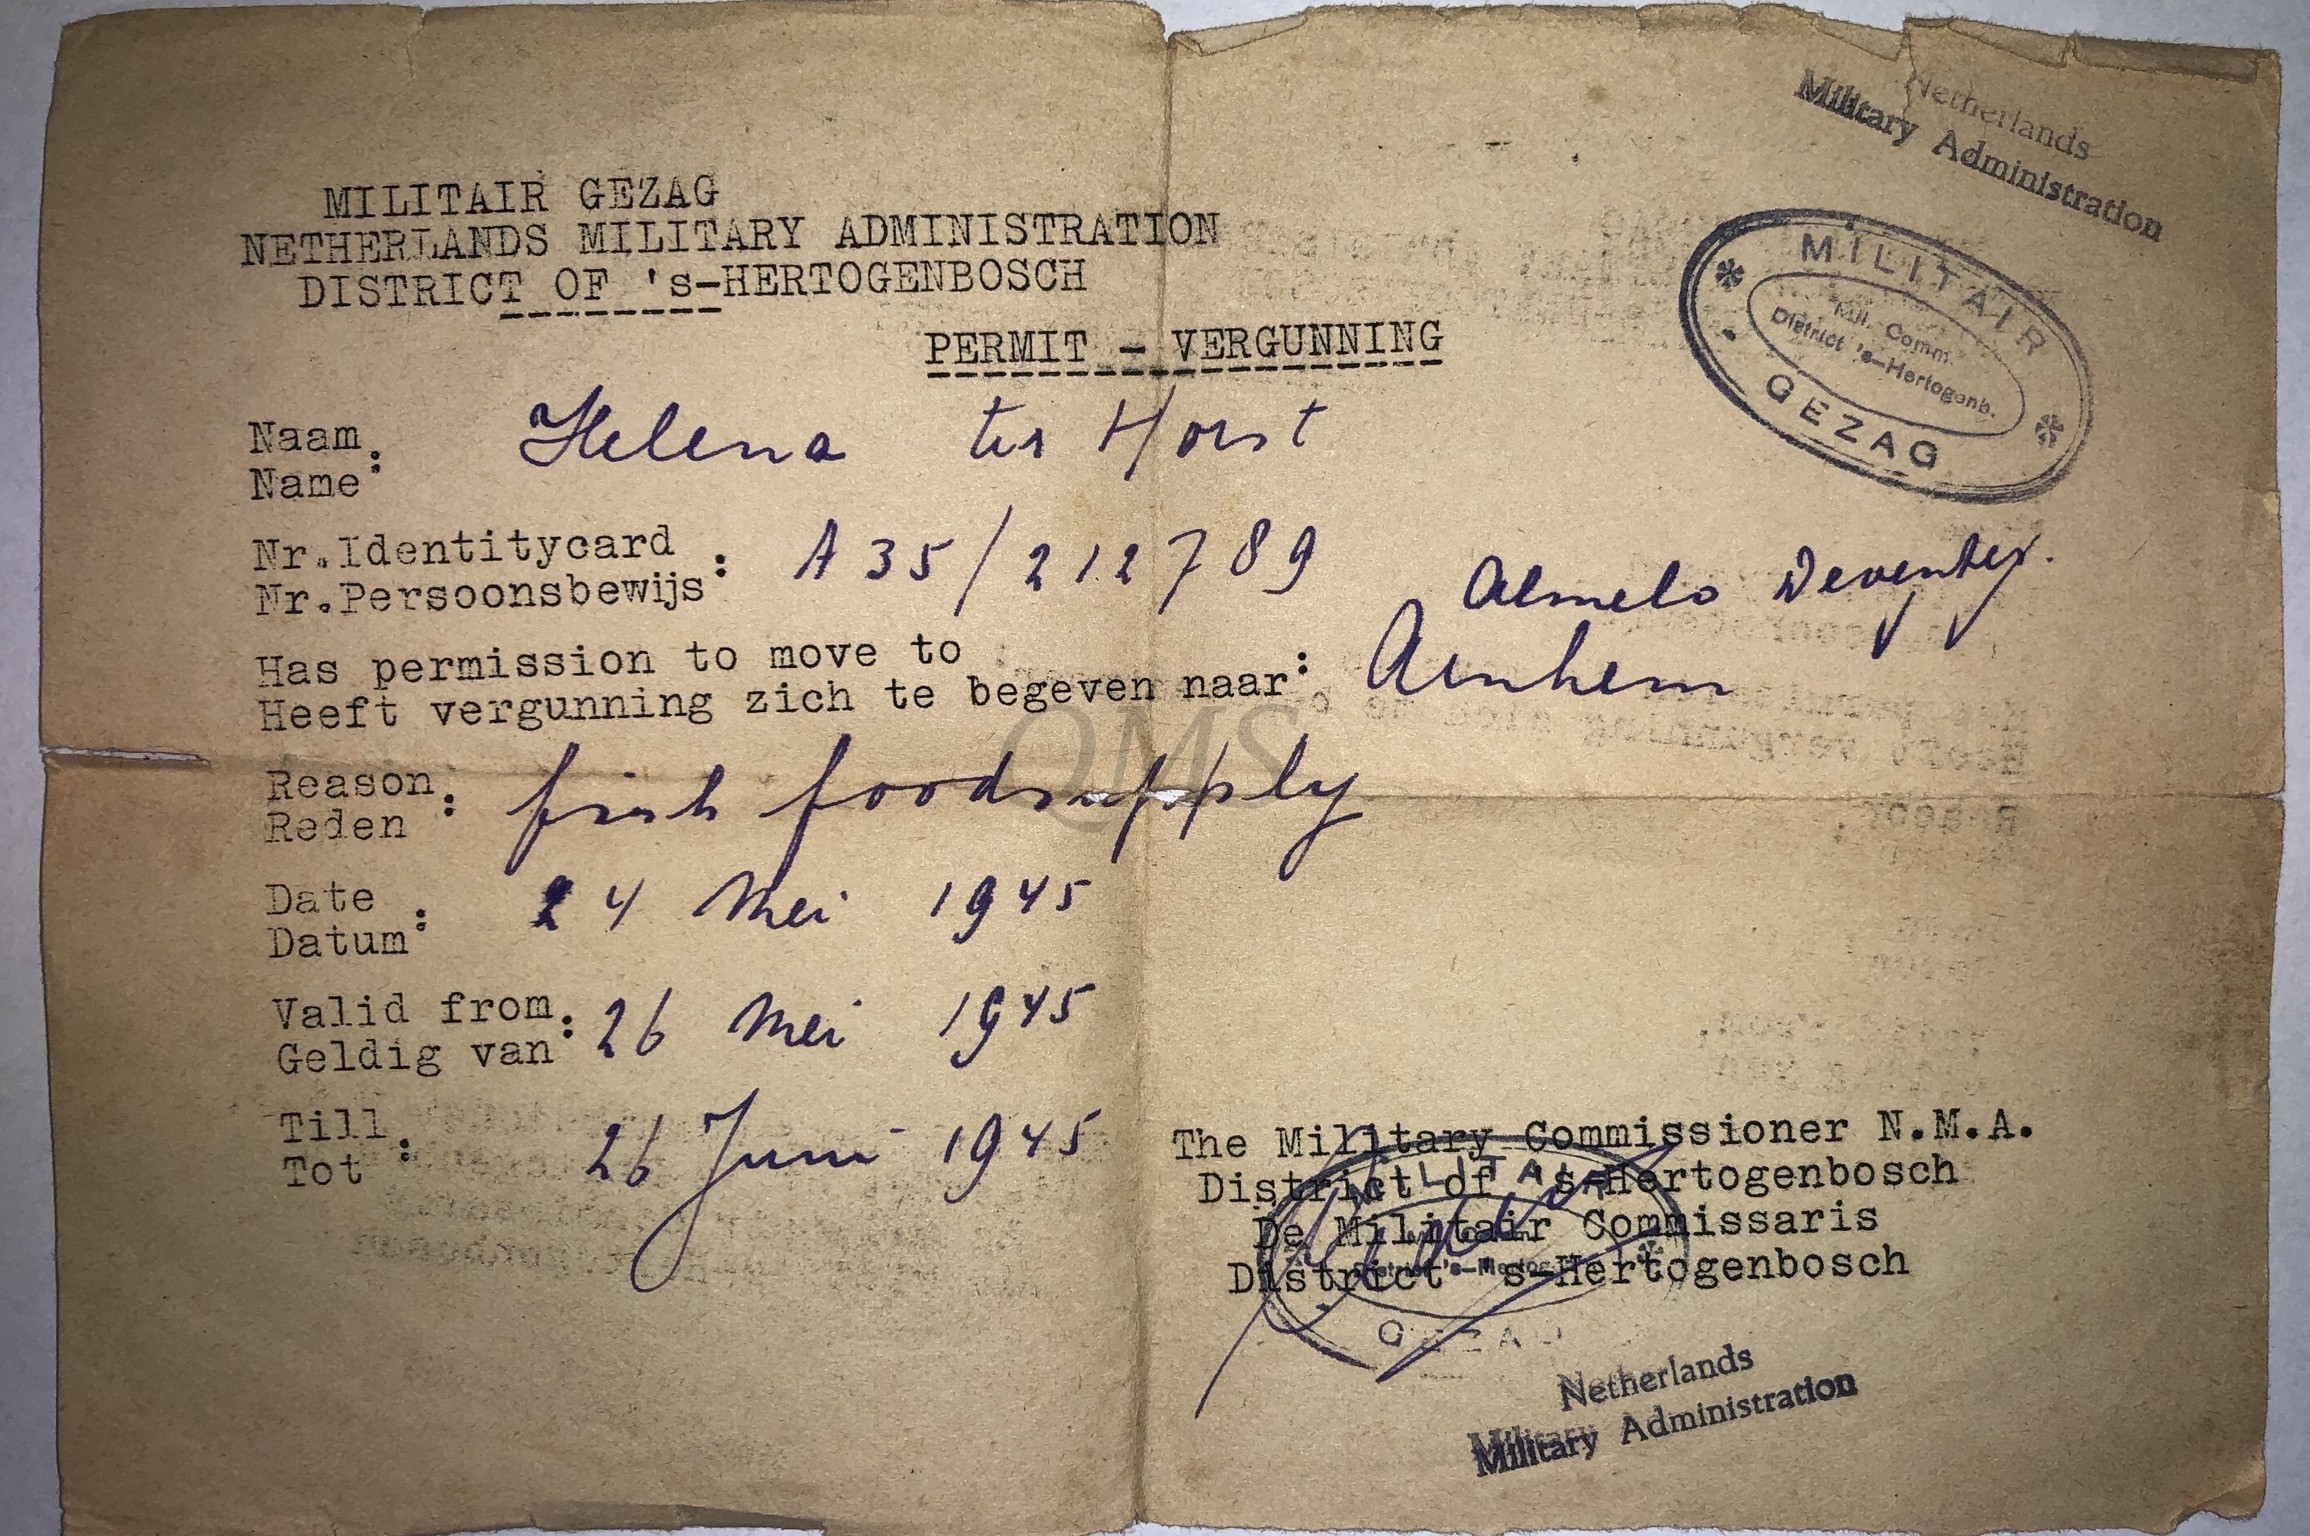 Netherlands
Military Administration
MILITAIR GEZAG
NETHERLANDS MILITARY ADMINISTRATION
DISTRICT OF 's-HERTOGENBOSCH
MILITAIR
Mil. Comm.
District 's-Hertogenb.
GEZAG
PERMIT - VERGUNNING
Naam
Name : Helena ter Horst
Nr.Identitycard
Nr.Persoonsbewijs : A 35/212789
Almelo Deventer.
Has permission to move to
Heeft vergunning zich te begeven naar : Arnhem
Reason
Reden : foodsupply
Date
Datum : 24 Mei 1945
Valid from
Geldig van : 26 Mei 1945
Till
Tot : 26 Juni 1945
The Military Commissioner N.M.A.
District of 's-Hertogenbosch
De Militair Commissaris
District 's-Hertogenbosch
MILITAIR
GEZAG
Netherlands
Military Administration
QMS